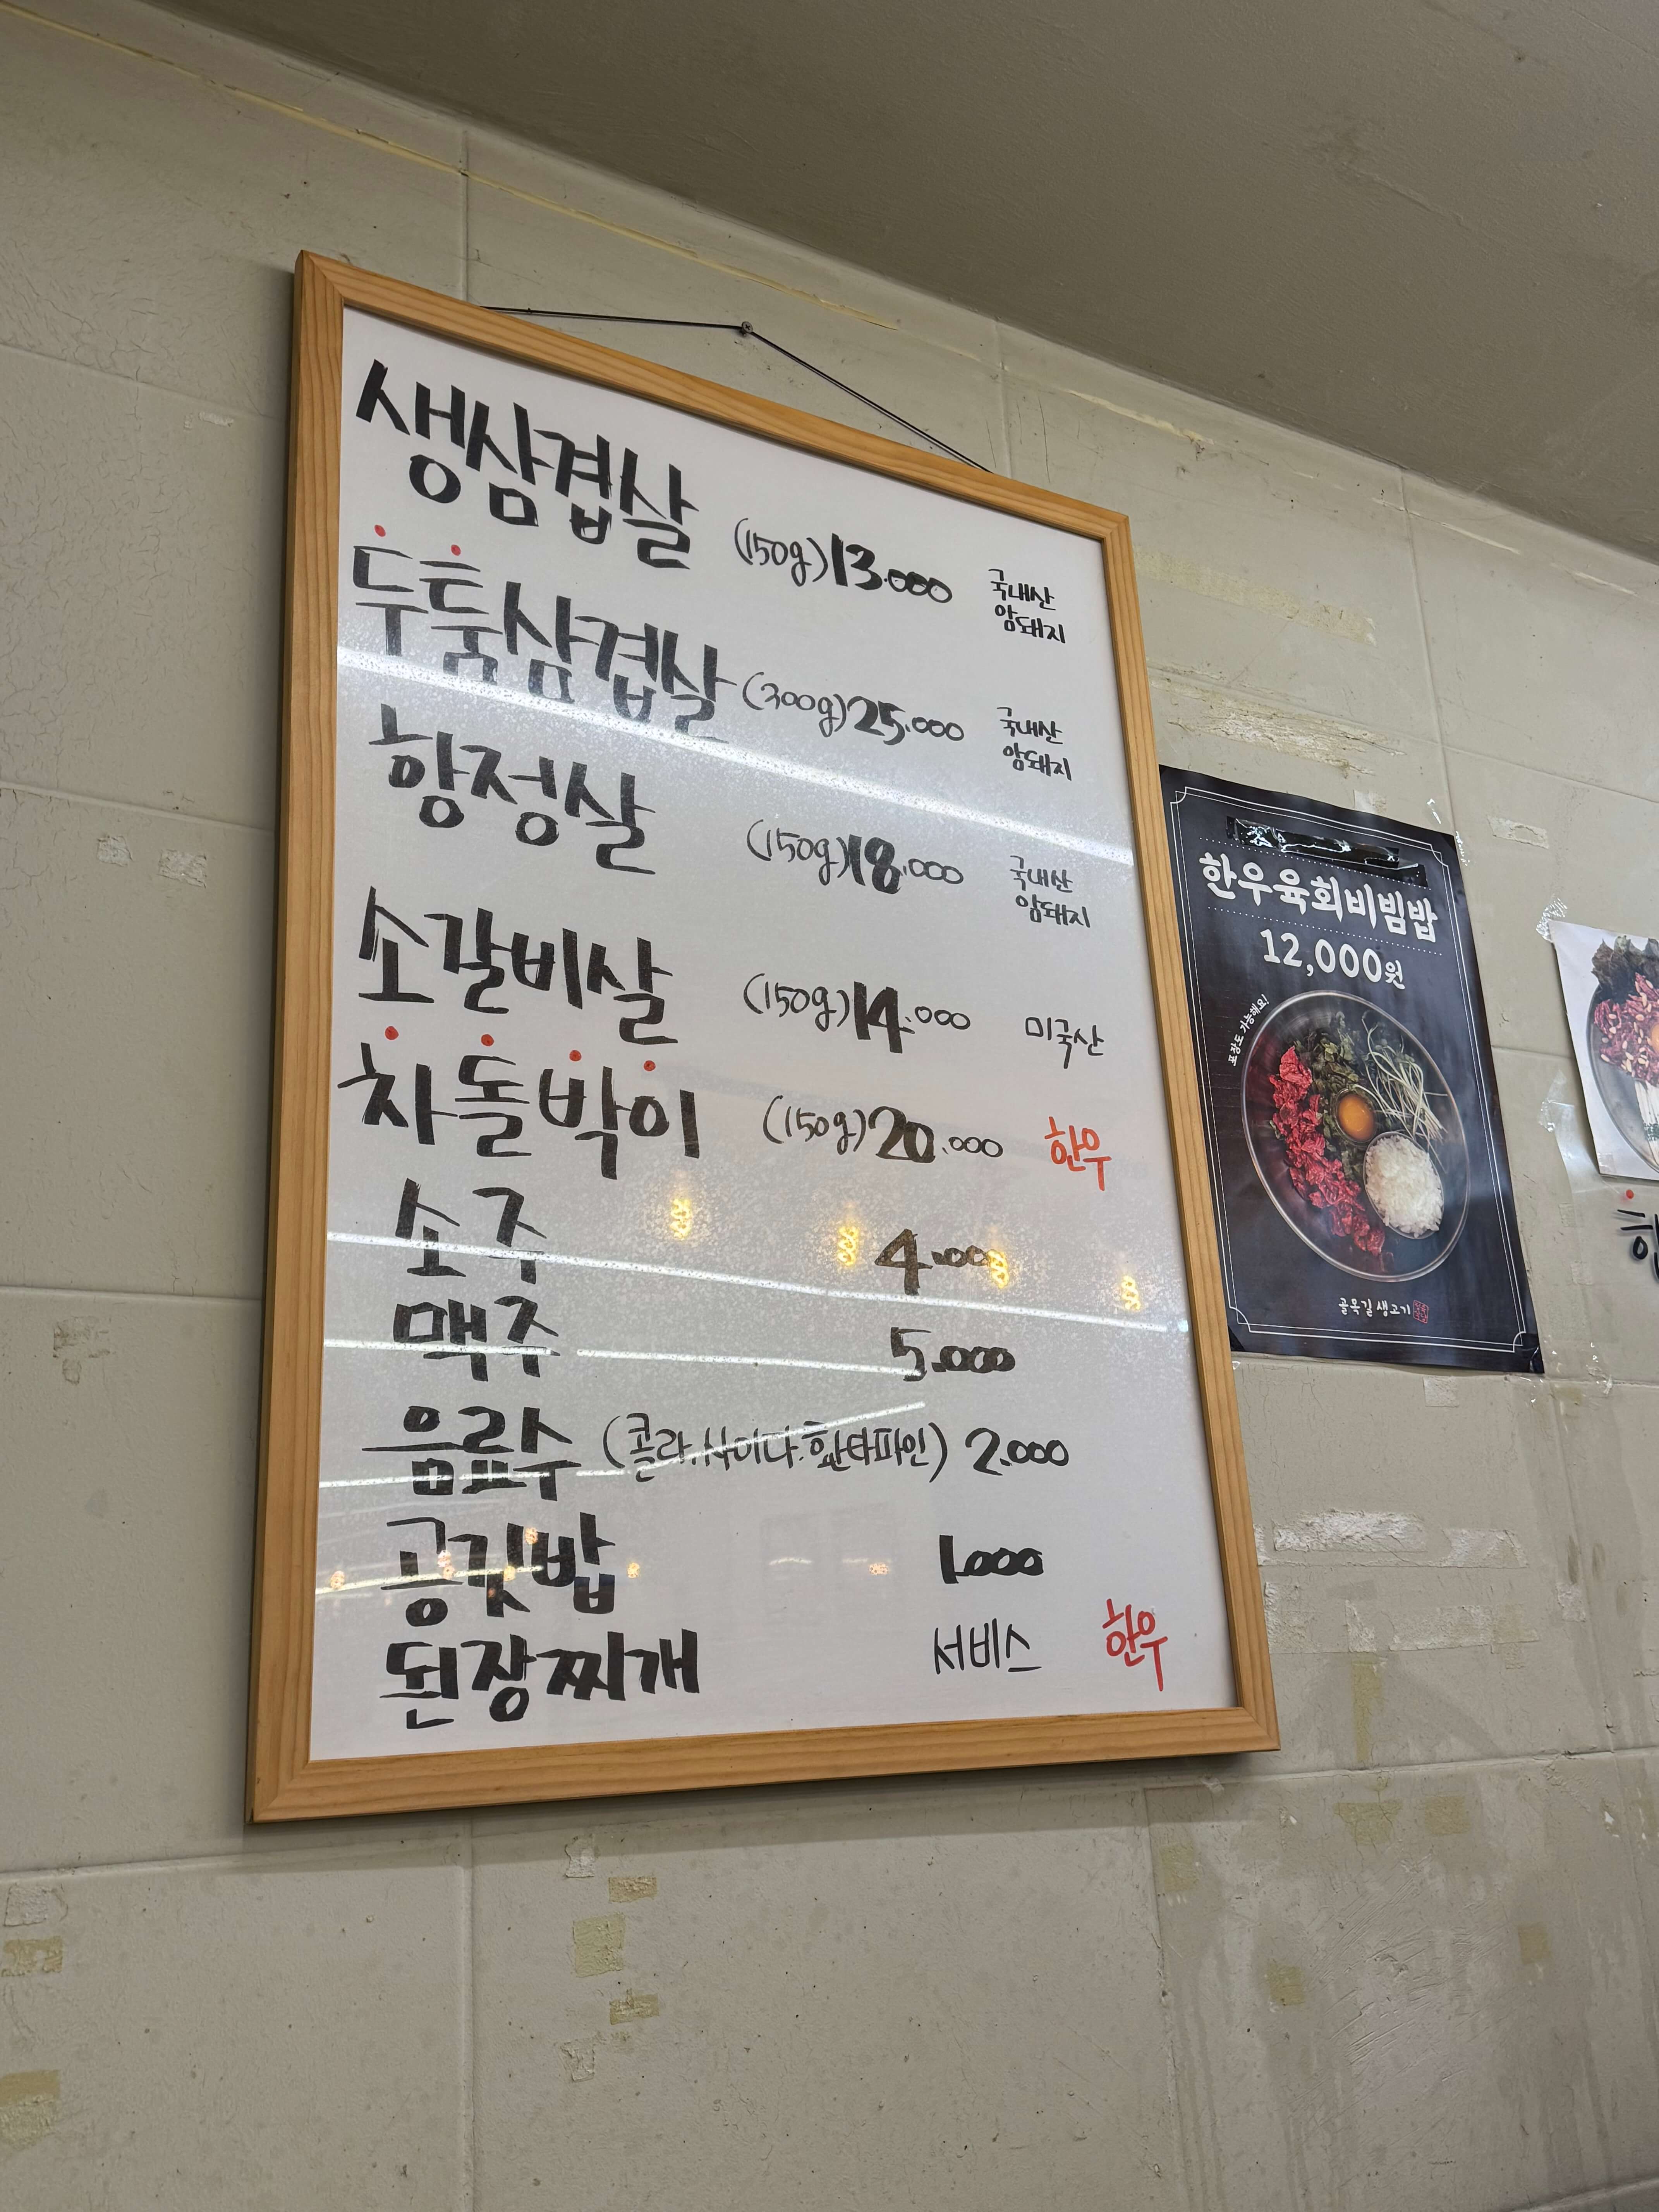 생삼겹살 (150g) 13.000 국내산 암돼지
두툼삼겹살 (300g) 25.000 국내산 암돼지
항정살 (150g) 18.000 국내산 암돼지
소갈비살 (150g) 14.000 미국산
차돌박이 (150g) 20.000 한우
소주 4.000
맥주 5.000
음료수 (콜라.사이다.환타파인) 2.000
공깃밥 1.000
된장찌개 서비스 한우
한우육회비빔밥
12,000원
포장도 가능해요!
골목길 생고기